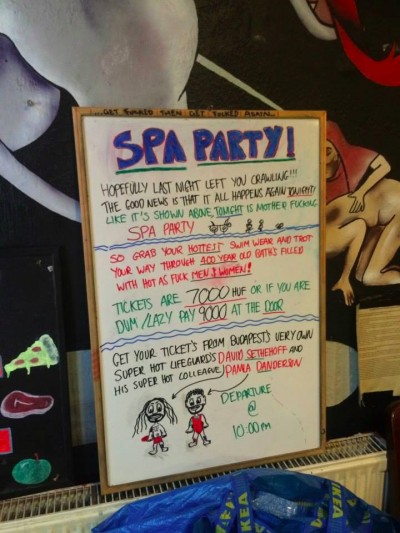 ...GET FUCKED THEN GET FUCKED AGAIN...
SPA PARTY!
HOPEFULLY LAST NIGHT LEFT YOU CRAWLING!!!
THE GOOD NEWS IS THAT IT ALL HAPPENS AGAIN TONIGHT!
LIKE IT'S SHOWN ABOVE, TONIGHT IS MOTHER FUCKING
SPA PARTY
SO GRAB YOUR HOTTEST SWIM WEAR AND TROT
YOUR WAY THROUGH 400 YEAR OLD BATH'S FILLED
WITH HOT AS FUCK MEN & WOMEN!
TICKETS ARE 7000 HUF OR IF YOU ARE
DUM/LAZY PAY 9000 AT THE DOOR
GET YOUR TICKET'S FROM BUDAPEST'S VERY OWN
SUPER HOT LIFEGUARD'S DAVID SETHEHOFF AND
HIS SUPER HOT COLLEAVE, PAMLA DANDERSON
DEPARTURE
@
10:00m
IKEA